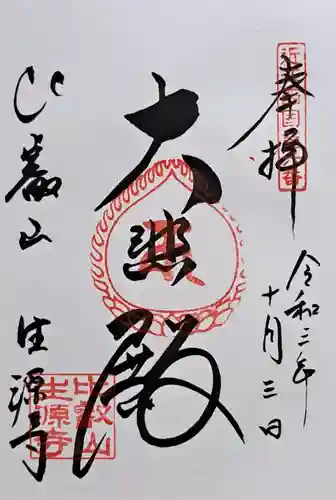 奉拝
令和二年
十月三日
大悲殿
比叡山 生源寺
比叡山
生源寺